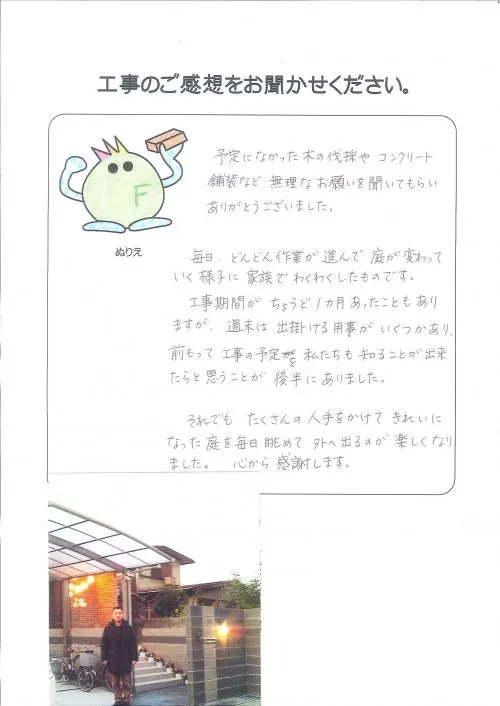 工事のご感想をお聞かせください。
F
ぬりえ
予定になかった木の伐採や コンクリート
舗装など 無理な お願いを聞いてもらい
ありがとうございました。
毎日、どんどん作業が 進んで 庭が変わって
いく様子に 家族で わくわくしたものです。
工事期間が ちょうど 1カ月 あったことも あり
ますが、週末は 出掛ける用事が いくつかあり、
前もって 工事の予定を 私たちも 知ることが出来
たらと思うことが 後半に ありました。
それでも たくさんの 人手をかけて きれいに
なった 庭を毎日 眺めて 外へ出るのが 楽しくなり
ました。 心から 感謝します。